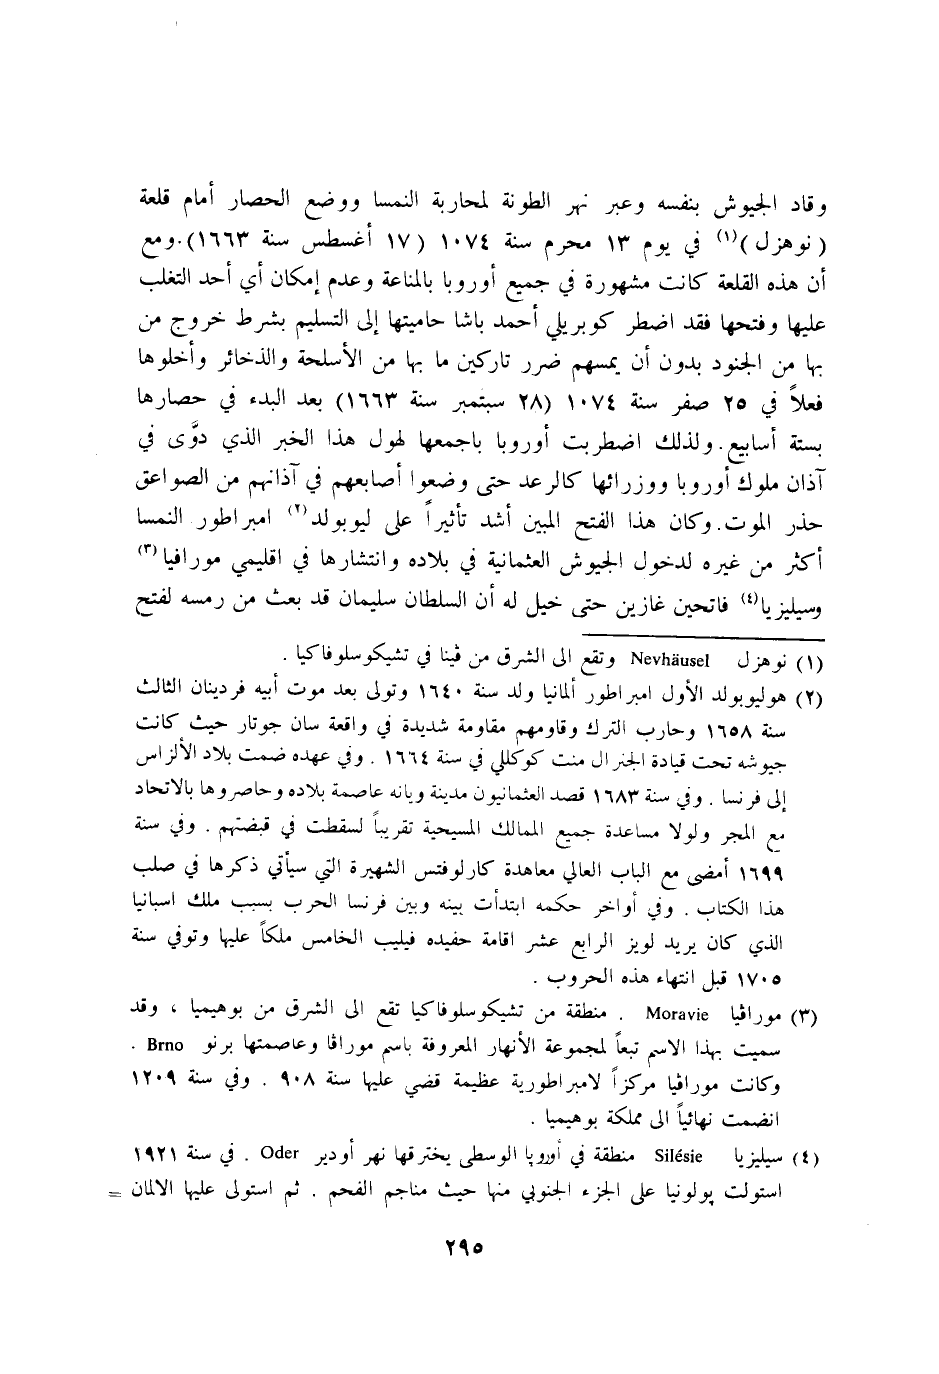 وقاد الجيوش بنفسه وعبر نهر الطونة لمحاربة النمسا ووضع الحصار أمام قلعة
(نوهزل)(١) في يوم ١٣ محرم سنة ١٠٧٤ (١٧ أغسطس سنة ١٦٦٣). ومع
أن هذه القلعة كانت مشهورة في جميع أوروبا بالمناعة وعدم إمكان أي أحد التغلب
عليها وفتحها فقد اضطر كوبريلي أحمد باشا حاميتها إلى التسليم بشرط خروج من
بها من الجنود بدون أن يمسهم ضرر تاركين ما بها من الأسلحة والذخائر وأخلوها
فعلاً في ٢٥ صفر سنة ١٠٧٤ (٢٨ سبتمبر سنة ١٦٦٣) بعد البدء في حصارها
بستة أسابيع. ولذلك اضطربت أوروبا باجمعها لهول هذا الخبر الذي دوَّى في
آذان ملوك أوروبا ووزرائها كالرعد حتى وضعوا أصابعهم في آذانهم من الصواعق
حذر الموت. وكان هذا الفتح المبين أشد تأثيراً على ليوبولد(٢) امبراطور النمسا
أكثر من غيره لدخول الجيوش العثمانية في بلاده وانتشارها في اقليمي مورافيا(٣)
وسيليزيا(٤) فاتحين غازين حتى خيل له أن السلطان سليمان قد بعث من رمسه لفتح
(١) نوهزل Nevhäusel وتقع الى الشرق من ڤينا في تشيكوسلوفاكيا .
(٢) هوليوبولد الأول امبراطور ألمانيا ولد سنة ١٦٤٠ وتولى بعد موت أبيه فردينان الثالث
سنة ١٦٥٨ وحارب الترك وقاومهم مقاومة شديدة في واقعة سان جوتار حيث كانت
جيوشه تحت قيادة الجنرال منت كوكللي في سنة ١٦٦٤ . وفي عهده ضمت بلاد الألزاس
إلى فرنسا . وفي سنة ١٦٨٣ قصد العثمانيون مدينة ويانه عاصمة بلاده وحاصروها بالاتحاد
مع المجر ولولا مساعدة جميع الممالك المسيحية تقريباً لسقطت في قبضتهم . وفي سنة
١٦٩٩ أمضى مع الباب العالي معاهدة كارلوفتس الشهيرة التي سيأتي ذكرها في صلب
هذا الكتاب . وفي أواخر حكمه ابتدأت بينه وبين فرنسا الحرب بسبب ملك اسبانيا
الذي كان يريد لويز الرابع عشر اقامة حفيده فيليب الخامس ملكاً عليها وتوفي سنة
١٧٠٥ قبل انتهاء هذه الحروب .
(٣) موراڤيا Moravie . منطقة من تشيكوسلوفاكيا تقع الى الشرق من بوهيميا ، وقد
سميت بهذا الاسم تبعاً لمجموعة الأنهار المعروفة باسم موراڤا وعاصمتها برنو Brno .
وكانت موراڤيا مركزاً لامبراطورية عظيمة قضي عليها سنة ٩٠٨ . وفي سنة ١٢٠٩
انضمت نهائياً الى مملكة بوهيميا .
(٤) سيليزيا Silésie منطقة في أوروپا الوسطى يخترقها نهر أودير Oder . في سنة ١٩٢١
استولت پولونيا على الجزء الجنوبي منها حيث مناجم الفحم . ثم استولى عليها الالمان =
٢٩٥